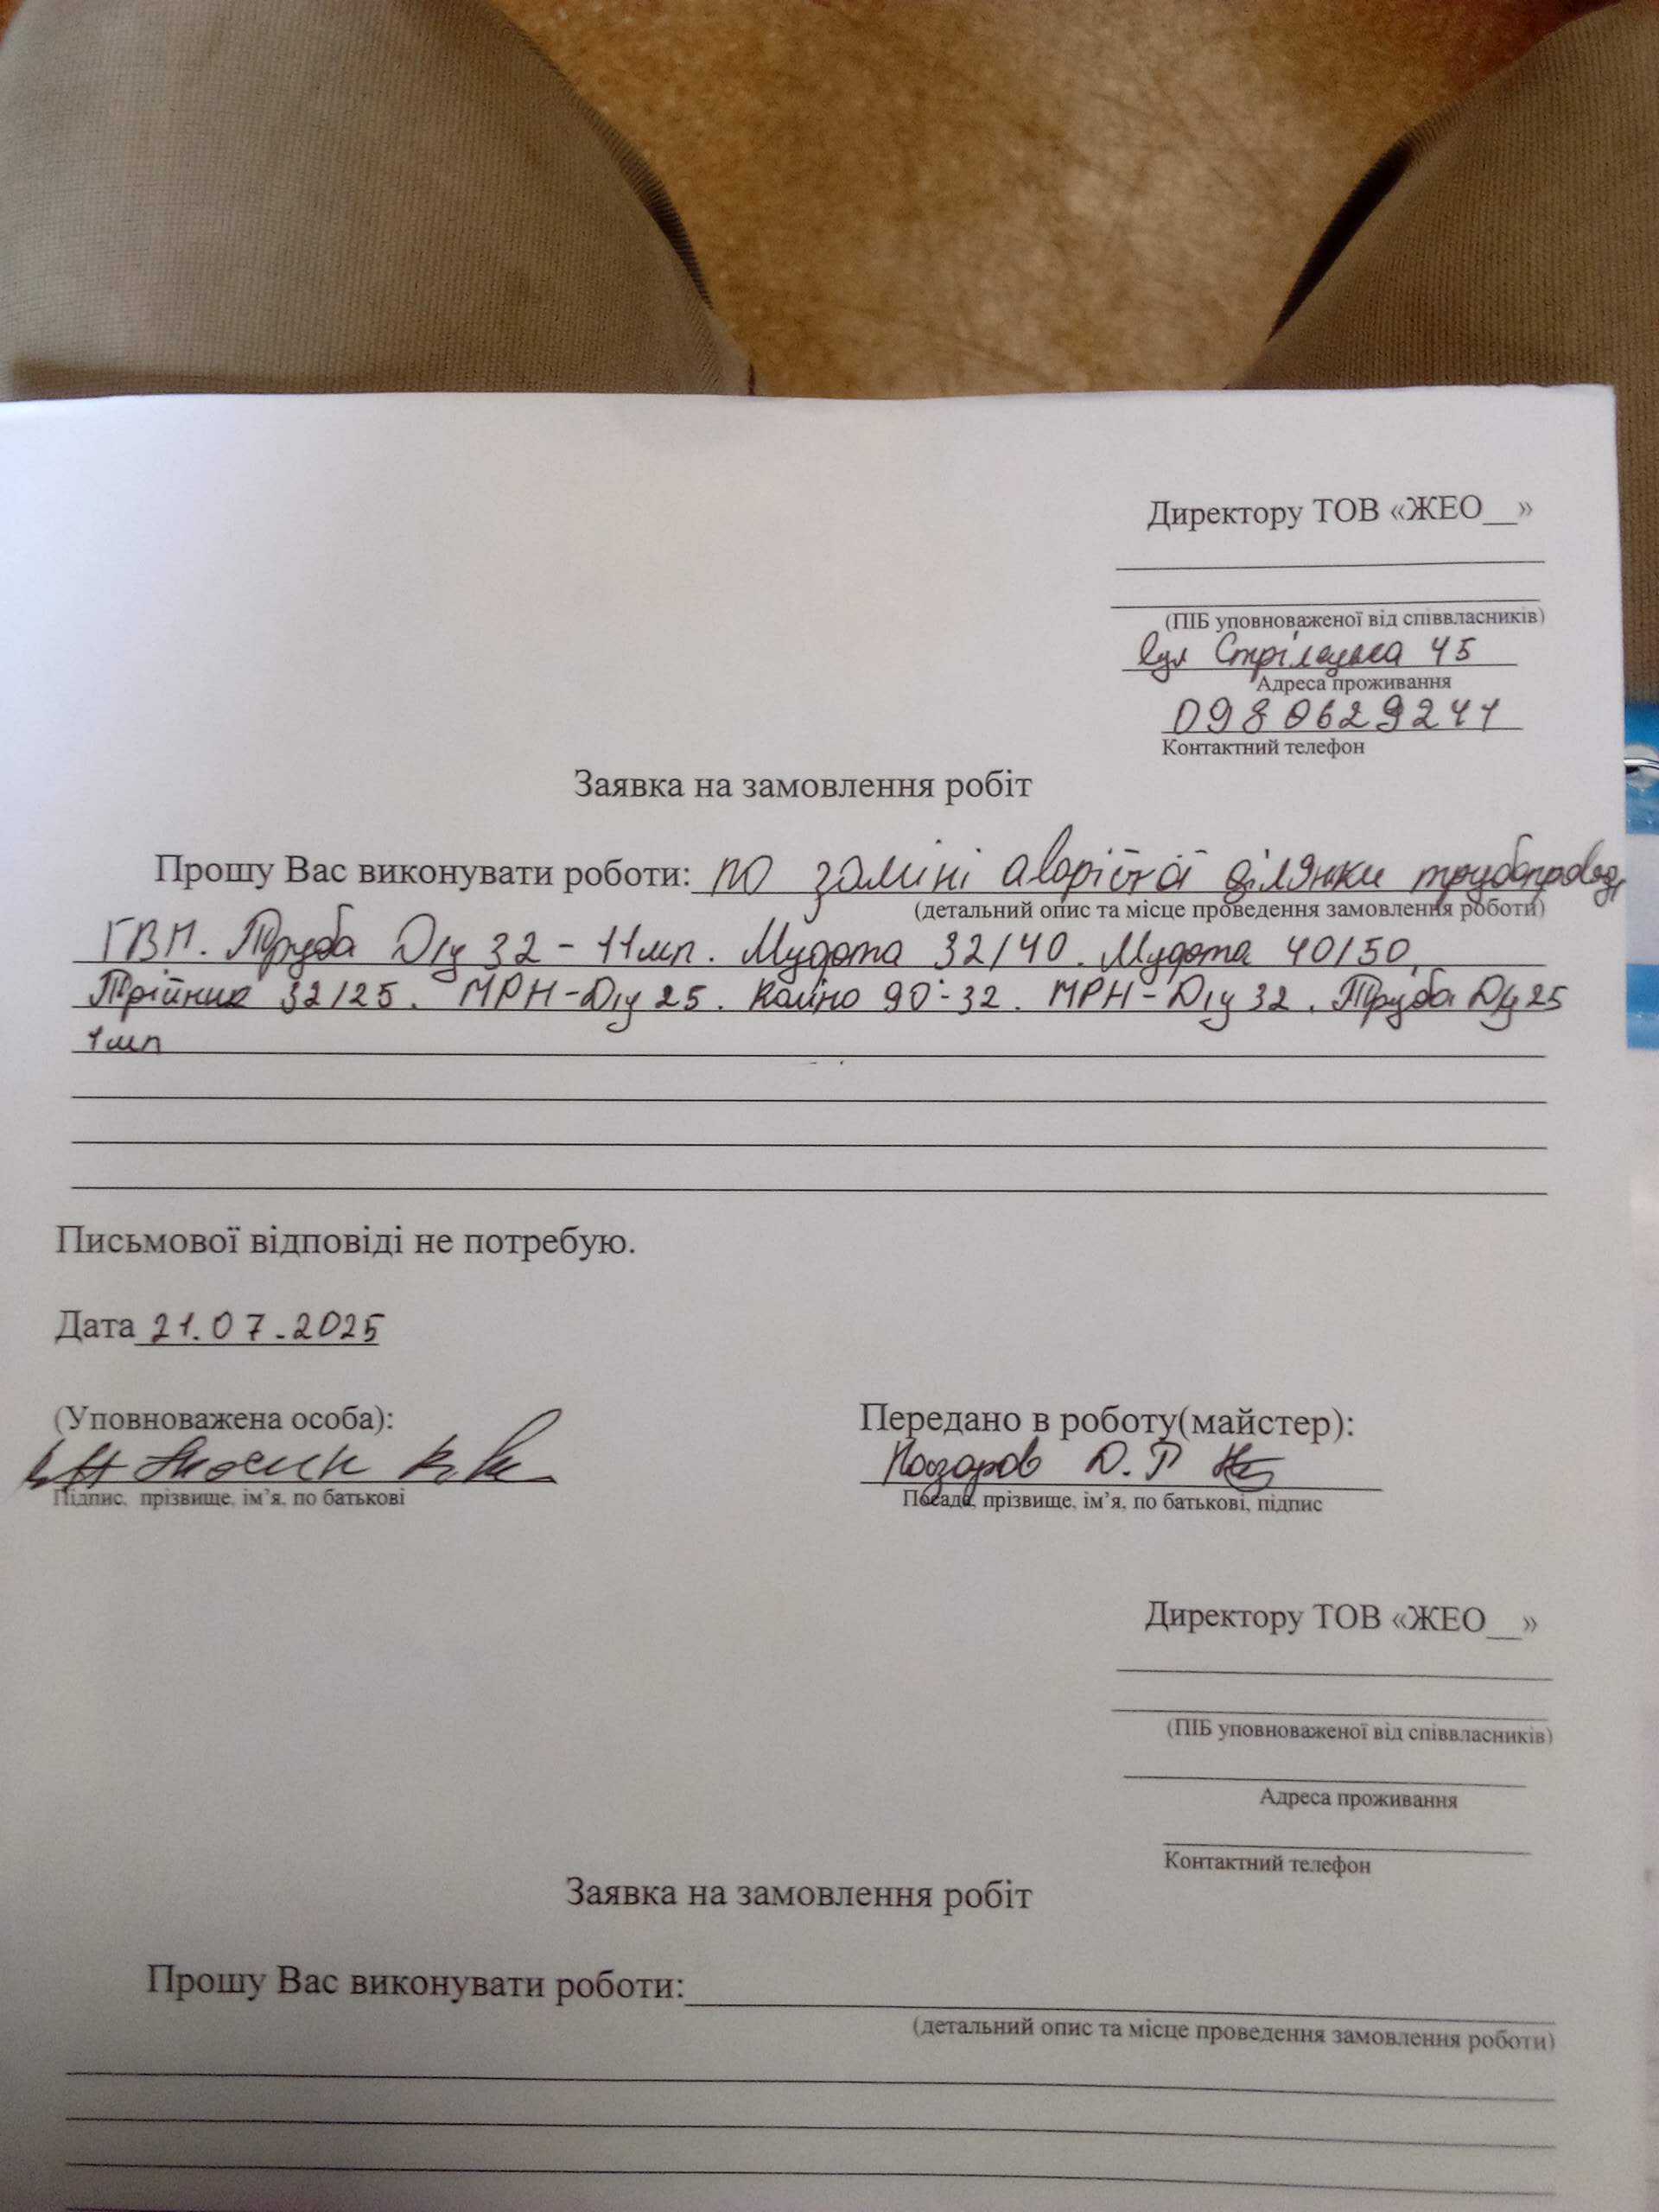 Директору ТОВ «ЖЕО__»
(ПІБ уповноваженої від співвласників)
вул Стрілецька 45
Адреса проживання
0980629241
Контактний телефон
Заявка на замовлення робіт
Прошу Вас виконувати роботи: по заміні аварійної ділянки трубопроводу
(детальний опис та місце проведення замовлення роботи)
ГВП. Труба Ду 32 - 11мп. Муфта 32/40. Муфта 40/50.
Трійник 32/25. МРН-Ду 25. Коліно 90°-32. МРН-Ду 32. Труба Ду 25
1мп
Письмової відповіді не потребую.
Дата 21.07.2025
(Уповноважена особа):
Передано в роботу(майстер):
Д.Р
Підпис, прізвище, ім’я, по батькові
Посада, прізвище, ім’я, по батькові, підпис
Директору ТОВ «ЖЕО__»
(ПІБ уповноваженої від співвласників)
Адреса проживання
Контактний телефон
Заявка на замовлення робіт
Прошу Вас виконувати роботи:
(детальний опис та місце проведення замовлення роботи)